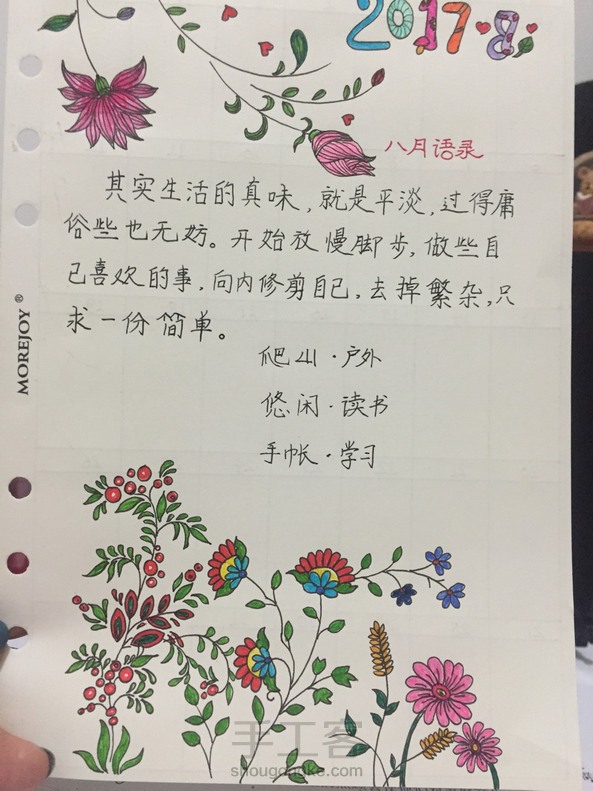 2017.8.
八月语录
其实生活的真味，就是平淡，过得庸
俗些也无妨。开始放慢脚步，做些自
己喜欢的事，向内修剪自己，去掉繁杂，只
求一份简单。
爬山·户外
悠闲·读书
手帐·学习
MOREJOY®
手工客
shougongke.com